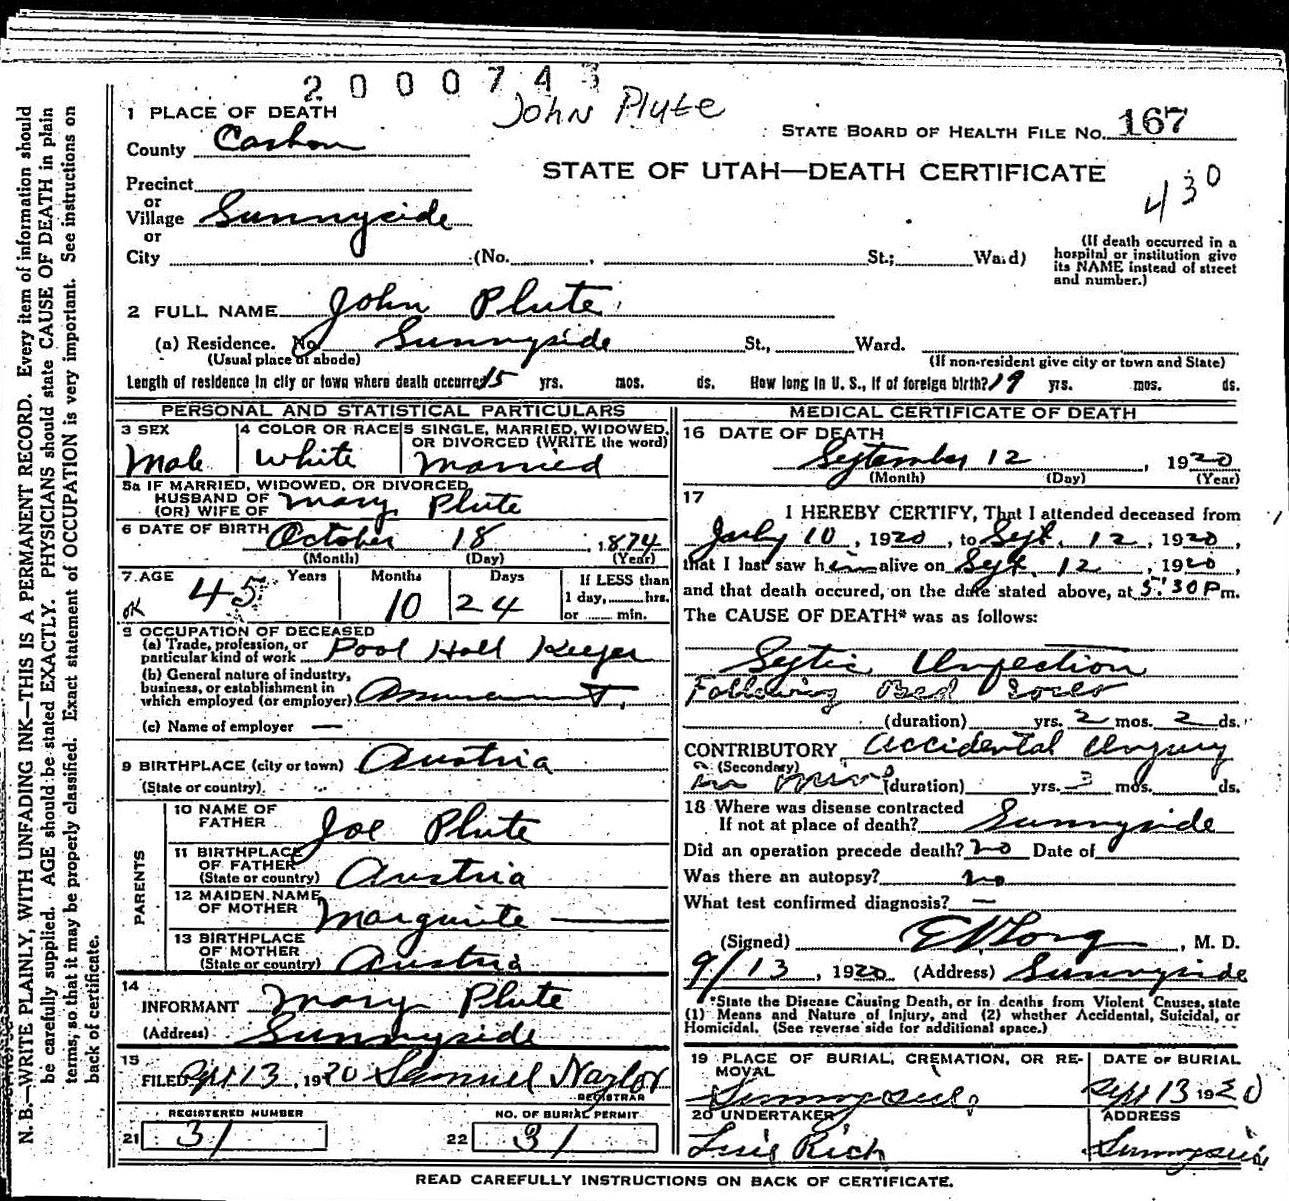 2000743
John Plute
1 PLACE OF DEATH
STATE BOARD OF HEALTH FILE No. 167
County Carbon
STATE OF UTAH—DEATH CERTIFICATE
430
Precinct
or
Village Sunnyside
or
City (No. , St.; Ward)
(If death occurred in a
hospital or institution give
its NAME instead of street
and number.)
2 FULL NAME John Plute
(a) Residence. No. Sunnyside St., Ward.
(Usual place of abode) (If non-resident give city or town and State)
Length of residence in city or town where death occurred 15 yrs. mos. ds. How long in U. S., if of foreign birth? 19 yrs. mos. ds.
PERSONAL AND STATISTICAL PARTICULARS
3 SEX 4 COLOR OR RACE 5 SINGLE, MARRIED, WIDOWED,
OR DIVORCED (WRITE the word)
Male White Married
5a IF MARRIED, WIDOWED, OR DIVORCED
HUSBAND OF
(OR) WIFE OF Mary Plute
6 DATE OF BIRTH October 18, 1874
(Month) (Day) (Year)
7 AGE Years Months Days If LESS than
1 day, hrs.
or min.
OK 45 10 24
9 OCCUPATION OF DECEASED
(a) Trade, profession, or
particular kind of work Pool Hall Keeper
(b) General nature of industry,
business, or establishment in
which employed (or employer) Amusement.
(c) Name of employer —
9 BIRTHPLACE (city or town) Austria
(State or country)
PARENTS
10 NAME OF
FATHER Joe Plute
11 BIRTHPLACE
OF FATHER
(State or country) Austria
12 MAIDEN NAME
OF MOTHER Marguite —
13 BIRTHPLACE
OF MOTHER
(State or country) Austria
14
INFORMANT Mary Plute
(Address) Sunnyside
15
FILED Sept 13, 1920 Samuel Naylor
REGISTRAR
REGISTERED NUMBER NO. OF BURIAL PERMIT
21 31 22 31
MEDICAL CERTIFICATE OF DEATH
16 DATE OF DEATH
September 12, 1920
(Month) (Day) (Year)
17
I HEREBY CERTIFY, That I attended deceased from
July 10, 1920, to Sept. 12, 1920,
that I last saw him alive on Sept. 12, 1920,
and that death occured, on the date stated above, at 5:30 Pm.
The CAUSE OF DEATH* was as follows:
Septic Infection
Following Bed Sores
(duration) yrs. 2 mos. 2 ds.
CONTRIBUTORY Accidental Injury
(Secondary)
in (duration) yrs. 3 mos. ds.
18 Where was disease contracted
If not at place of death? Sunnyside
Did an operation precede death? no Date of
Was there an autopsy? no
What test confirmed diagnosis? —
(Signed) , M. D.
9/13, 1920 (Address) Sunnyside
*State the Disease Causing Death, or in deaths from Violent Causes, state
(1) Means and Nature of Injury, and (2) whether Accidental, Suicidal, or
Homicidal. (See reverse side for additional space.)
19 PLACE OF BURIAL, CREMATION, OR RE-
MOVAL DATE OF BURIAL
Sunnyside Sept 13 1920
20 UNDERTAKER ADDRESS
Rich Sunnyside
READ CAREFULLY INSTRUCTIONS ON BACK OF CERTIFICATE.
N. B.—WRITE PLAINLY, WITH UNFADING INK—THIS IS A PERMANENT RECORD. Every item of information should
be carefully supplied. AGE should be stated EXACTLY. PHYSICIANS should state CAUSE OF DEATH in plain
terms, so that it may be properly classified. Exact statement of OCCUPATION is very important. See instructions on
back of certificate.